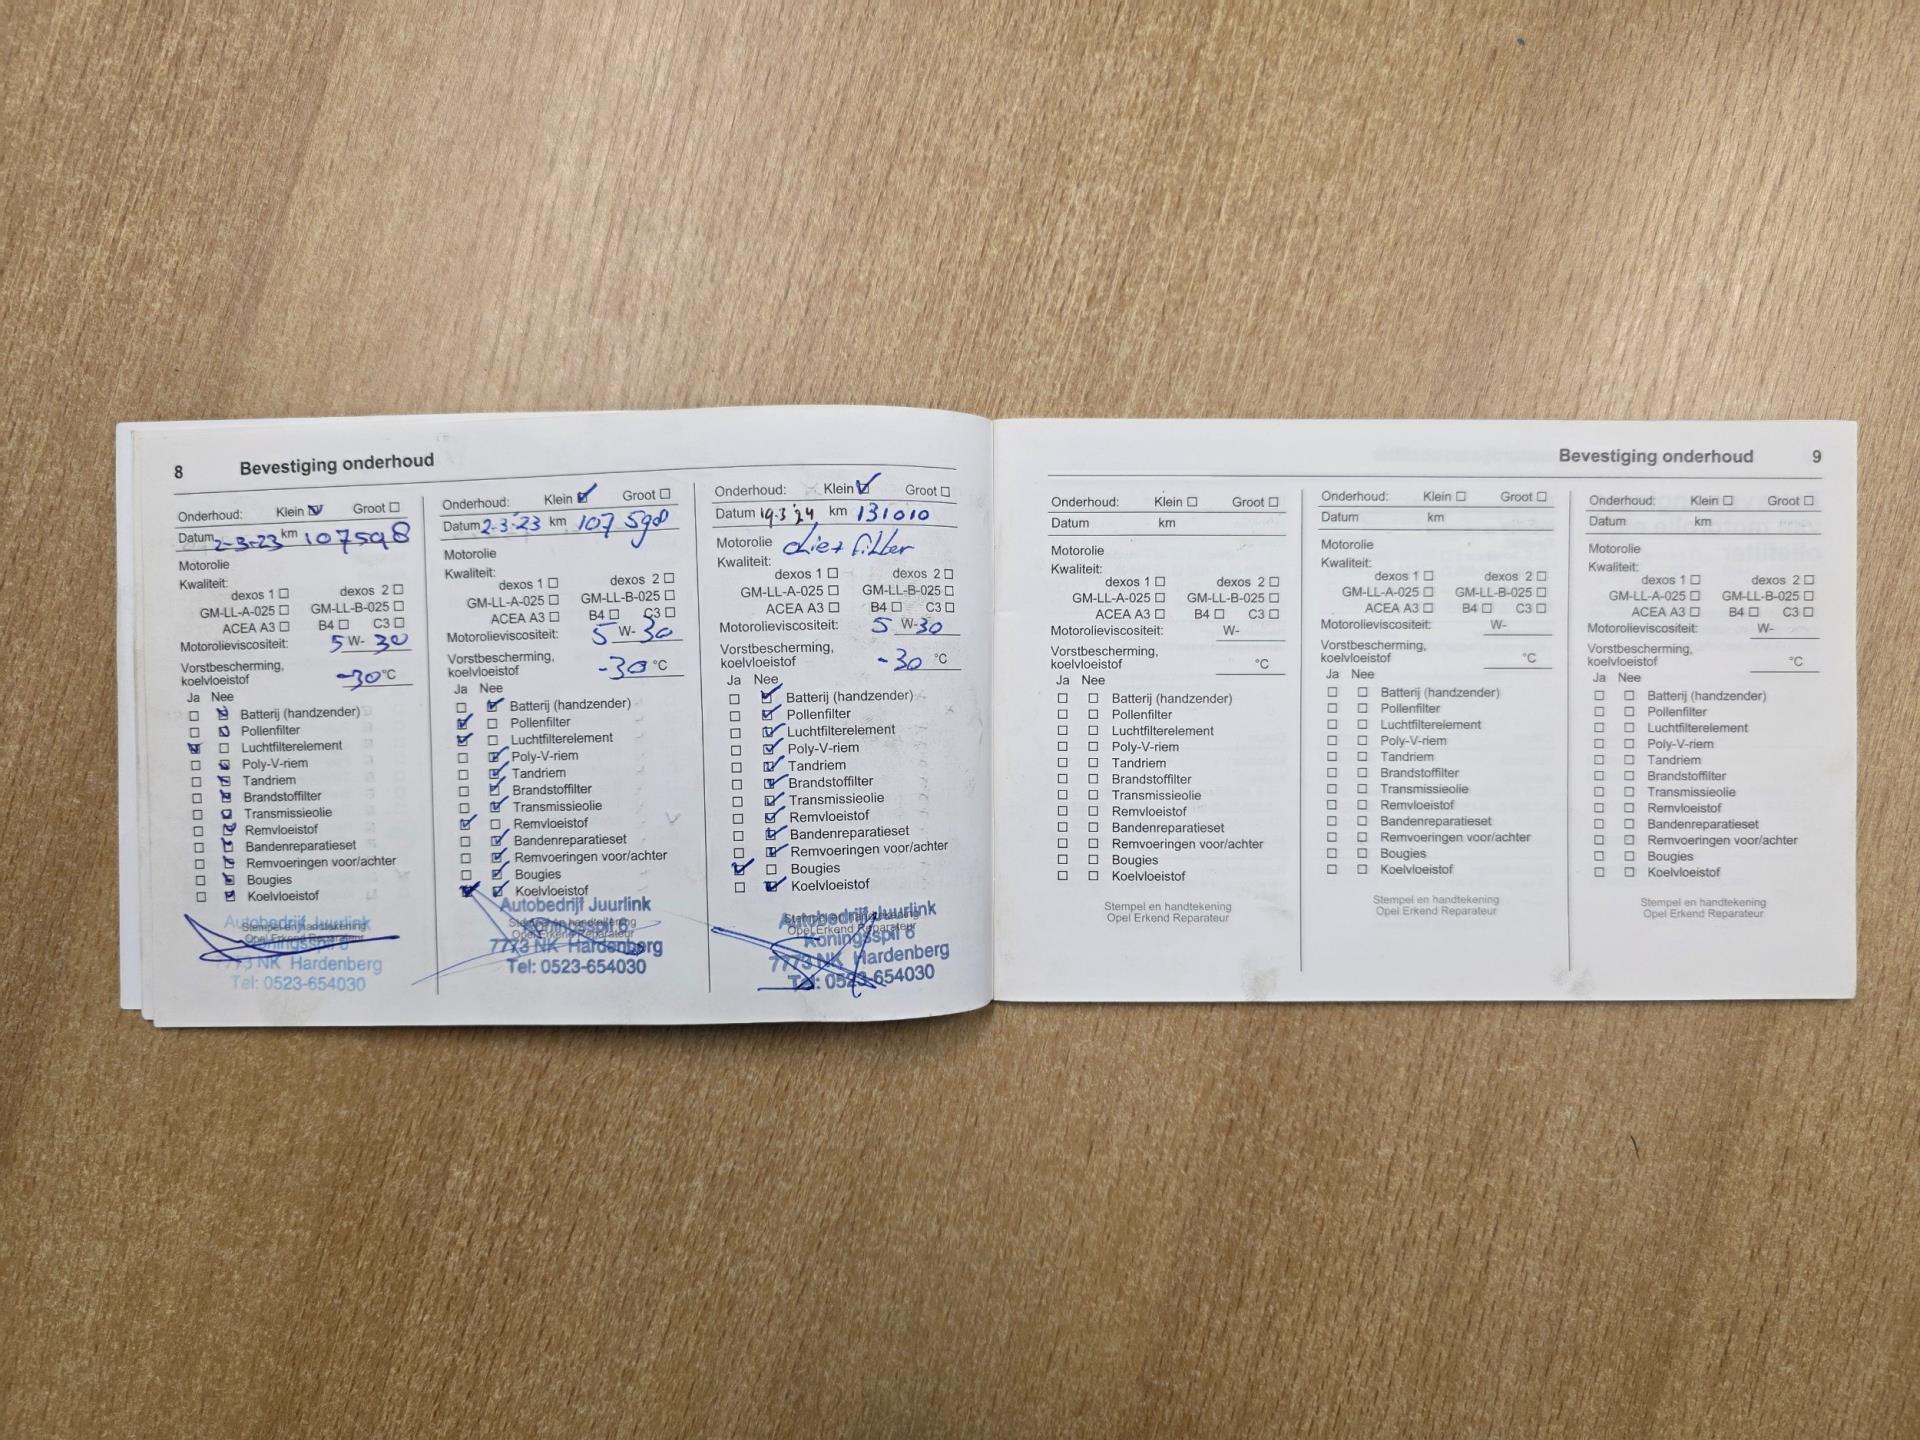 8 Bevestiging onderhoud
Onderhoud: Klein Groot
Datum 2-3-23 km 107598
Motorolie
Kwaliteit:
dexos 1 dexos 2
GM-LL-A-025 GM-LL-B-025
ACEA A3 B4 C3
Motorolieviscositeit: 5 W- 30
Vorstbescherming,
koelvloeistof -30 °C
Ja Nee
Batterij (handzender)
Pollenfilter
Luchtfilterelement
Poly-V-riem
Tandriem
Brandstoffilter
Transmissieolie
Remvloeistof
Bandenreparatieset
Remvoeringen voor/achter
Bougies
Koelvloeistof
Autobedrijf Juurlink
Stempel en handtekening
Opel Erkend Reparateur
Koningsspil 6
7773 NK Hardenberg
Tel: 0523-654030
Onderhoud: Klein Groot
Datum 2-3-23 km 107 598
Motorolie
Kwaliteit:
dexos 1 dexos 2
GM-LL-A-025 GM-LL-B-025
ACEA A3 B4 C3
Motorolieviscositeit: 5 W- 30
Vorstbescherming,
koelvloeistof -30 °C
Ja Nee
Batterij (handzender)
Pollenfilter
Luchtfilterelement
Poly-V-riem
Tandriem
Brandstoffilter
Transmissieolie
Remvloeistof
Bandenreparatieset
Remvoeringen voor/achter
Bougies
Koelvloeistof
Autobedrijf Juurlink
Stempel en handtekening
Koningsspil 6
Opel Erkend Reparateur
7773 NK Hardenberg
Tel: 0523-654030
Onderhoud: Klein Groot
Datum 19-3'24 km 131010
Motorolie olie+ filter
Kwaliteit:
dexos 1 dexos 2
GM-LL-A-025 GM-LL-B-025
ACEA A3 B4 C3
Motorolieviscositeit: 5 W-30
Vorstbescherming,
koelvloeistof -30 °C
Ja Nee
Batterij (handzender)
Pollenfilter
Luchtfilterelement
Poly-V-riem
Tandriem
Brandstoffilter
Transmissieolie
Remvloeistof
Bandenreparatieset
Remvoeringen voor/achter
Bougies
Koelvloeistof
Autobedrijf Juurlink
Stempel en handtekening
Opel Erkend Reparateur
Koningsspil 6
7773 NK Hardenberg
Tel: 0523-654030
Bevestiging onderhoud 9
Onderhoud: Klein Groot
Datum km
Motorolie
Kwaliteit:
dexos 1 dexos 2
GM-LL-A-025 GM-LL-B-025
ACEA A3 B4 C3
Motorolieviscositeit: W-
Vorstbescherming,
koelvloeistof °C
Ja Nee
Batterij (handzender)
Pollenfilter
Luchtfilterelement
Poly-V-riem
Tandriem
Brandstoffilter
Transmissieolie
Remvloeistof
Bandenreparatieset
Remvoeringen voor/achter
Bougies
Koelvloeistof
Stempel en handtekening
Opel Erkend Reparateur
Onderhoud: Klein Groot
Datum km
Motorolie
Kwaliteit:
dexos 1 dexos 2
GM-LL-A-025 GM-LL-B-025
ACEA A3 B4 C3
Motorolieviscositeit: W-
Vorstbescherming,
koelvloeistof °C
Ja Nee
Batterij (handzender)
Pollenfilter
Luchtfilterelement
Poly-V-riem
Tandriem
Brandstoffilter
Transmissieolie
Remvloeistof
Bandenreparatieset
Remvoeringen voor/achter
Bougies
Koelvloeistof
Stempel en handtekening
Opel Erkend Reparateur
Onderhoud: Klein Groot
Datum km
Motorolie
Kwaliteit:
dexos 1 dexos 2
GM-LL-A-025 GM-LL-B-025
ACEA A3 B4 C3
Motorolieviscositeit: W-
Vorstbescherming,
koelvloeistof °C
Ja Nee
Batterij (handzender)
Pollenfilter
Luchtfilterelement
Poly-V-riem
Tandriem
Brandstoffilter
Transmissieolie
Remvloeistof
Bandenreparatieset
Remvoeringen voor/achter
Bougies
Koelvloeistof
Stempel en handtekening
Opel Erkend Reparateur